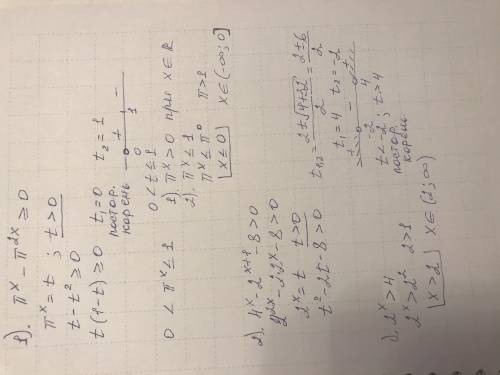 1). π^x - π^2x ≥ 0
π^x = t ; t > 0
t - t² ≥ 0
t(1-t) ≥ 0   t₁ = 0   t₂ = 1
постор.
корень
- 0 + 1 -
0 < t ≤ 1
0 < π^x ≤ 1   1). π^x > 0 при x ∈ ℝ
2). π^x ≤ 1
π^x ≤ π^0   π > 1
x ≤ 0   x ∈ (-∞; 0]
2). 4^x - 2^x+1 - 8 > 0
2^2x - 2·2^x - 8 > 0
2^x = t   t > 0
t² - 2t - 8 > 0   t₁,₂ = 2±√4+32 / 2 = 2±6 / 2
t₁ = 4   t₂ = -2
+ -2 - 4 +
t < -2 ; t > 4
постор.
корень
1). 2^x > 4
2^x > 2²   2 > 1
x > 2   x ∈ (2; ∞)